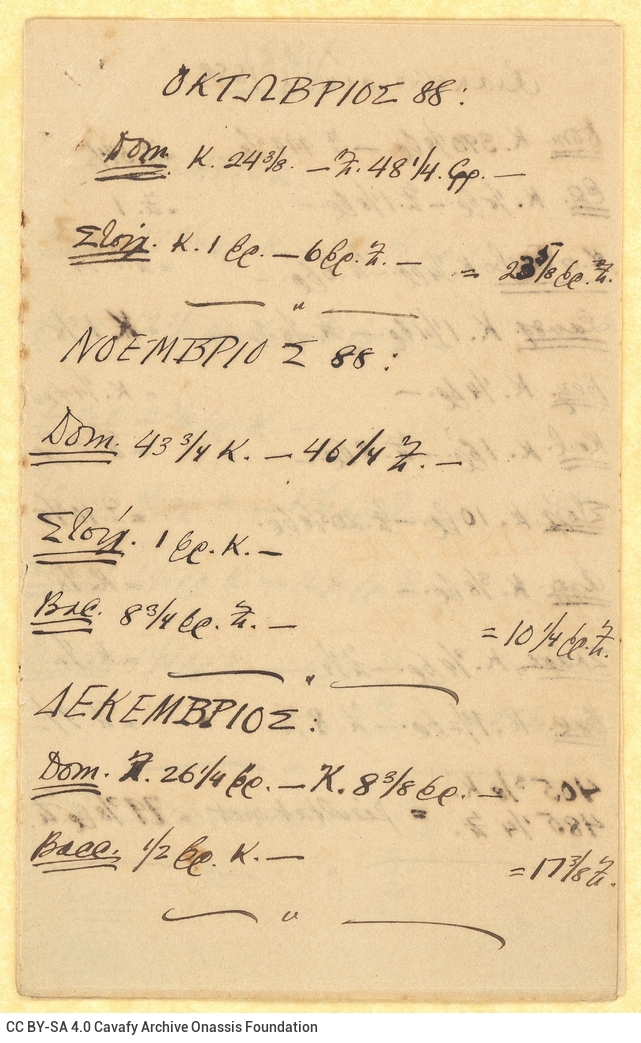 ΟΚΤΩΒΡΙΟΣ 88:
Dom. Κ. 24 3/8. — Ζ. 48 1/4. φρ. —
Στοίχ. Κ. 1 φρ. — 6 φρ. Ζ. — = 23 5/8 φρ. Ζ.
ΝΟΕΜΒΡΙΟΣ 88:
Dom. 43 3/4 Κ. — 46 1/4 Ζ. —
Στοίχ. 1 φρ. Κ. —
Bac. 8 3/4 φρ. Ζ. — = 10 1/4 φρ. Ζ.
ΔΕΚΕΜΒΡΙΟΣ:
Dom. Ζ. 26 1/4 φρ. — Κ. 8 3/8 φρ. —
Bacc. 1/2 φρ. Κ. — = 17 3/8 Ζ.
CC BY-SA 4.0 Cavafy Archive Onassis Foundation